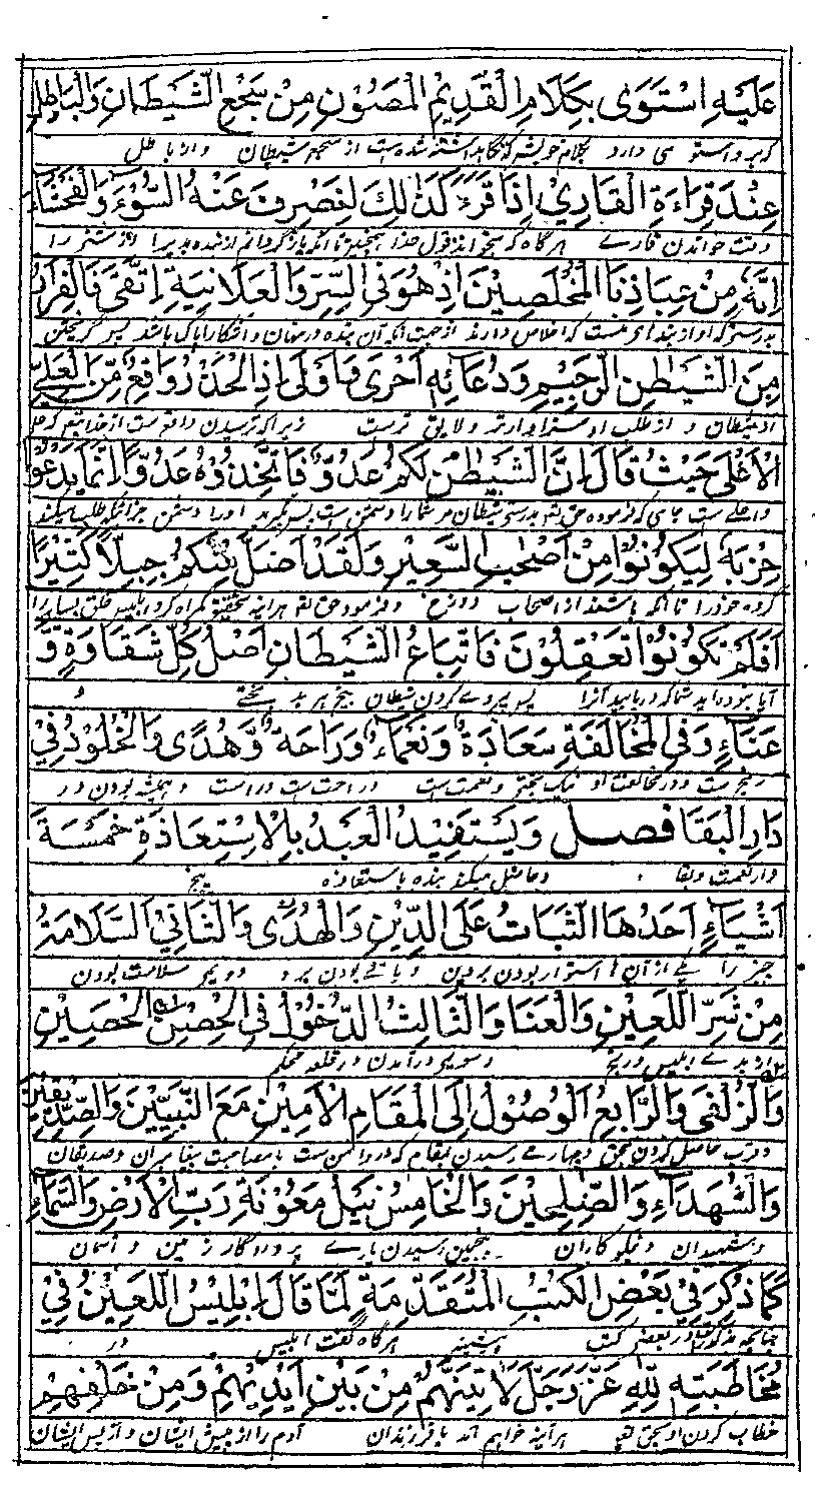 عَلَيْهِ اسْتَوَى بِكَلَامِ الْقَدِيْمِ الْمَصُوْنِ مِنْ سَجْعِ الشَّيْطَانِ وَالْبَاطِلِ
كه برو استو می دارد بكلام خویش كه نگاهداشته شده است از سجع شیطان و از باطل
عِنْدَ قِرَاءَةِ الْقَارِيْ اِذَا قَرَءَ كَذَالِكَ لِنَصْرِفَ عَنْهُ السُّوْءَ وَالْفَحْشَاءَ
وقت خواندن قارے هرگاه كه بخواند قول خدا همچنین تا آنكه باز گردانم از بنده بدیرا و از شتنر را
اِنَّهٗ مِنْ عِبَادِنَا الْمُخْلَصِيْنَ اِذْ هُوَ فِي السِّرِّ وَالْعَلَانِيَةِ اِتَّقٰى فَالْفِرَارُ
بدرستیكه او از بندهای ماست كه اخلاص دارند از جهت آنكه آن بنده در نهان و آشكارا پاك باشد پس گریختن
مِنَ الشَّيْطٰنِ الرَّجِيْمِ وَدُعَائِهٖ اَحْرٰى وَاَوْلٰى اِذِ الْحَذَرُ وَاقِعٌ مِّنَ الْعَلِيِّ
از شیطان و از طلب او سزاوارتر و لایق ترست زیرا كه ترسیدن واقع ست از خدایتعالی كه
الْاَعْلٰى حَيْثُ قَالَ اِنَّ الشَّيْطٰنَ لَكُمْ عَدُوٌّ فَاتَّخِذُوْهُ عَدُوًّا اِنَّمَا يَدْعُوْا
و اعلے ست جای كه فرموده حق تعالی بدرستی شیطان مر شما را دشمن ست پس بگیرید او را دشمن جز آنكه طلب میكند
حِزْبَهٗ لِيَكُوْنُوْا مِنْ اَصْحٰبِ السَّعِيْرِ وَلَقَدْ اَضَلَّ مِنْكُمْ جِبِلًّا كَثِيْرًا
گروه خود را تا آنكه باشند از اصحاب دوزخ و فرمود حق تعالی هر آینه بتحقیق گمراه كرد ابلیس خلق بسیار را
اَفَلَمْ تَكُوْنُوْا تَعْقِلُوْنَ فَاتِّبَاعُ الشَّيْطَانِ اَصْلُ كُلِّ شَقَاوَةٍ وَّ
آیا نبوده اید شما كه دریابید آنرا پس پیروے كردن شیطان بیخ هر بد بختے و
عَنَاءٍ وَفِي الْمُخَالَفَةِ سَعَادَةٌ وَنَعْمَاءُ وَرَاحَةٌ وَّهُدًى وَالْخُلُوْدُ فِيْ
رنج ست و در مخالفت او نیك بختی و نعمت ست و راحت ست و راست و همیشه بودن در
دَارِ الْبَقَا فصل وَيَسْتَفِيْدُ الْعَبْدُ بِالْاِسْتِعَاذَةِ خَمْسَةَ
دار نعمت و بقا و حاصل میكند بنده باستعاذه پنج
اَشْيَاءٍ اَحَدُهَا الثَّبَاتُ عَلَى الدِّيْنِ وَالْهُدٰى وَالثَّانِيْ السَّلَامَةُ
چیز را یكے از آنها استوار بودن بر دین و باقے بودن برو دویم سلامت بودن
مِنْ شَرِّ اللَّعِيْنِ وَالْعَنَا وَالثَّالِثُ الدُّخُوْلُ فِي الْحِصْنِ الْحَصِيْنِ
از بدے ابلیس و رنج و سویم درآمدن در قلعه محكم
وَالزُّلْفٰى وَالرَّابِعُ الْوُصُوْلُ اِلَى الْمَقَامِ الْاَمِيْنِ مَعَ النَّبِيِّيْنَ وَالصِّدِّيْقِيْنَ
و قرب حاصل كردن بحق و چهارمے رسیدن بمقام كه درو امن ست با مصاحبت پیغامبران و صدیقان
وَالشُّهَدَاءِ وَالصّٰلِحِيْنَ وَالْخَامِسُ نَيْلُ مَعُوْنَةِ رَبِّ الْاَرْضِ وَالسَّمَاءِ
و شهیدان و نیكو كاران پنجمین رسیدن یارے پروردگار زمین و آسمان
كَمَا ذُكِرَ فِيْ بَعْضِ الْكُتُبِ الْمُتَقَدِّمَةِ لَمَّا قَالَ اِبْلِيْسُ اللَّعِيْنُ فِيْ
چنانچه مذكور در بعض كتب پیشینه هرگاه گفت ابلیس در
مُخَاطَبَتِهٖ لِلّٰهِ عَزَّ وَجَلَّ لَاٰتِيَنَّهُمْ مِنْ بَيْنِ اَيْدِيْهِمْ وَمِنْ خَلْفِهِمْ
خطاب كردن او بحق تعالی هر آینه خواهم آمد با فرزندان آدم را از پیش ایشان و از پس ایشان